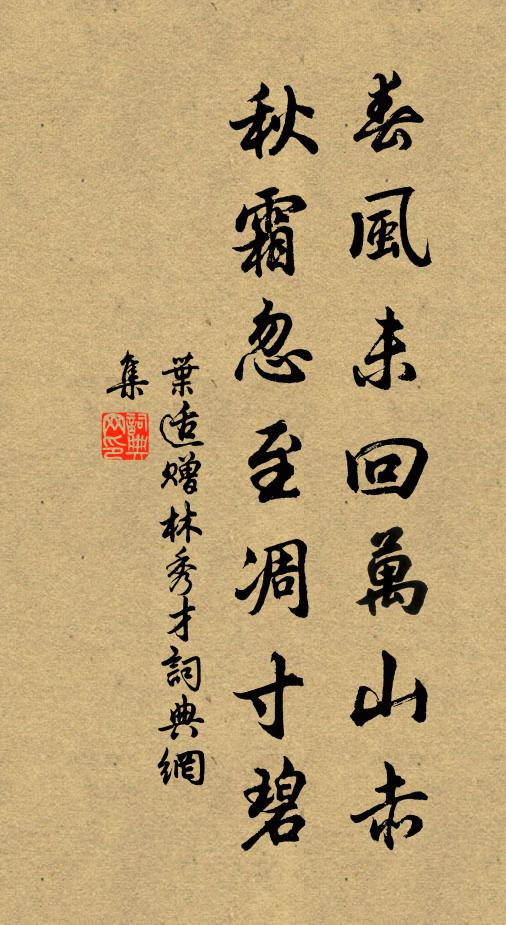 春風未回萬山赤
秋霜忽至凋寸碧
葉适贈林秀才詞典網
集
詞典網印